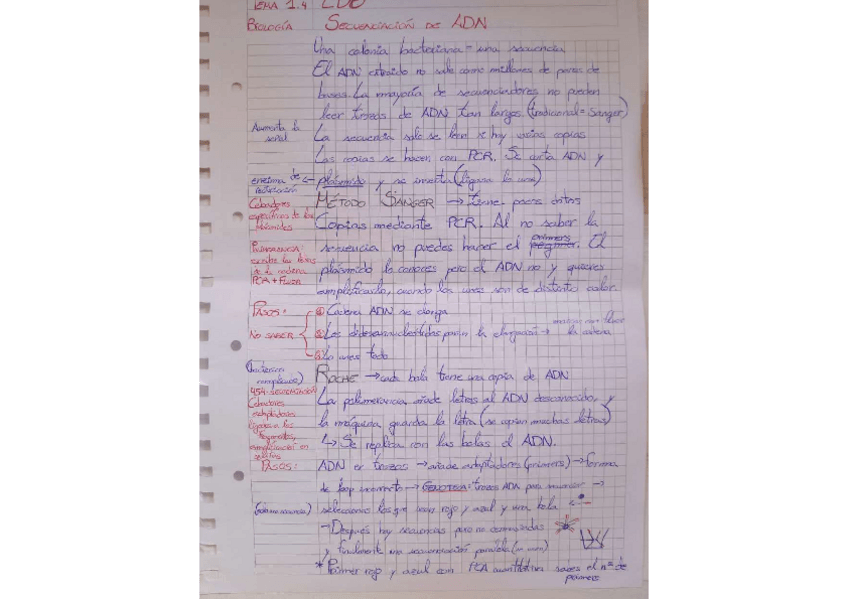 TEMA 1.4
BIOLOGÍA SECUENCIACIÓN DE ADN
Una colonia bacteriana = una secuencia
El ADN extraido no sale como millones de pares de
bases. La mayoría de secuenciadores no pueden
leer trozos de ADN tan largos (tradicional = Sanger)
Aumenta la señal
La secuencia solo se lee si hay varias copias
Las copias se hacen con PCR. Se corta ADN y
enzima de restricción
plásmido y se inserta (ligasa lo une)
MÉTODO SANGER → tiene pocos datos
Cebadores específicos de los plásmidos
Copias mediante PCR. Al no saber la
secuencia no puedes hacer el primers. El
POLIMERASA:
de la cadena
PCR + Fluor
plásmido lo conoces pero el ADN no y quieres
amplificarlo, cuando los unes son de distinto color.
PASOS:
① Cadena ADN se alarga
NO SABER
② Los didesoxinucleótidos paran la elongación → la cadena
③ Lo unes todo
ROCHE → cada bola tiene una copia de ADN
La polimerasa añade letras al ADN desconocido, y
la máquina guarda la letra (se copian muchas letras)
↳ Se replica con las bolas el ADN.
PASOS:
ADN en trozos → añade adaptadores (primers) → forma
de loop incorrecto → GENOTECA: trozos ADN para →
seleccionas los que sean rojo y azul y una bola
→ Después hay secuencias pero no ordenadas
y finalmente una secuenciación paralela
* Primer rojo y azul con PCR quantitativa sabes el nº de
primers